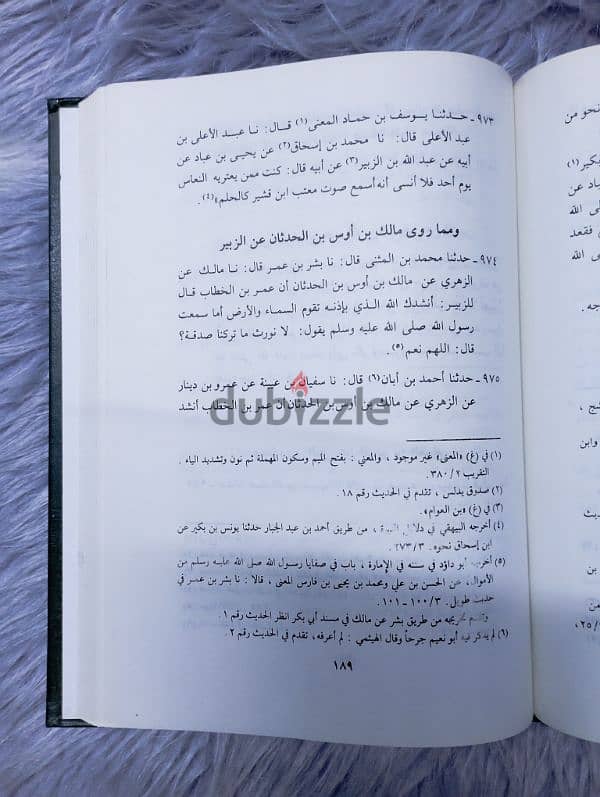 ٩٧٣ - حدثنا يوسف بن حماد المعنى(١) قال: نا عبد الأعلى بن
عبد الأعلى قال: نا محمد بن إسحاق(٢) عن يحيى بن عباد عن
أبيه عن عبد الله بن الزبير(٣) عن أبيه قال: كنت ممن يعتريه النعاس
يوم أحد فلا أنسى أنه أسمع صوت معتب ابن قشير كالحلم»(٤).
ومما روى مالك بن أوس بن الحدثان عن الزبير
٩٧٤ - حدثنا محمد بن المثنى قال: نا بشر بن عمر قال: نا مالك عن
الزهري عن مالك بن أوس بن الحدثان أن عمر بن الخطاب قال
للزبير: أنشدك الله الذي بإذنه تقوم السماء والأرض أما سمعت
رسول الله صلى الله عليه وسلم يقول: لا نورث ما تركنا صدقة؟
قال: اللهم نعم(٥).
٩٧٥ - حدثنا أحمد بن أبان(٦) قال: نا سفيان بن عيينة عن عمرو بن دينار
عن الزهري عن مالك بن أوس بن الحدثان أن عمر بن الخطاب أنشد
dubizzle
(١) في (غ) «المعنى» غير موجود ، والمعني : بفتح الميم وسكون المهملة ثم نون وتشديد الياء .
التقريب ٢ / ٣٨٠ .
(٢) صدوق يدلس ، تقدم في الحديث رقم ١٨ .
(٣) في (غ) «بن العوام».
(٤) أخرجه البيهقي في دلائل النبوة ، من طريق أحمد بن عبد الجبار حدثنا يونس بن بكير عن
ابن إسحاق نحوه . ٣ / ٢٧٣ .
(٥) أخرجه أبو داؤد في سننه في الإمارة ، باب في صفايا رسول الله صلى الله عليه وسلم من
الأموال ، عن الحسن بن علي ومحمد بن يحيى بن فارس المعنى ، قالا : نا بشر بن عمر في
حديث طويل . ٣ / ١٠٠ - ١٠١ .
وتقدم تخريجه من طريق بشر عن مالك في مسند أبي بكر انظر الحديث رقم ١ .
(٦) لم يذكر فيه أبو نعيم جرحاً وقال الهيثمي : لم أعرفه ، تقدم في الحديث رقم ٢ .
١٨٩